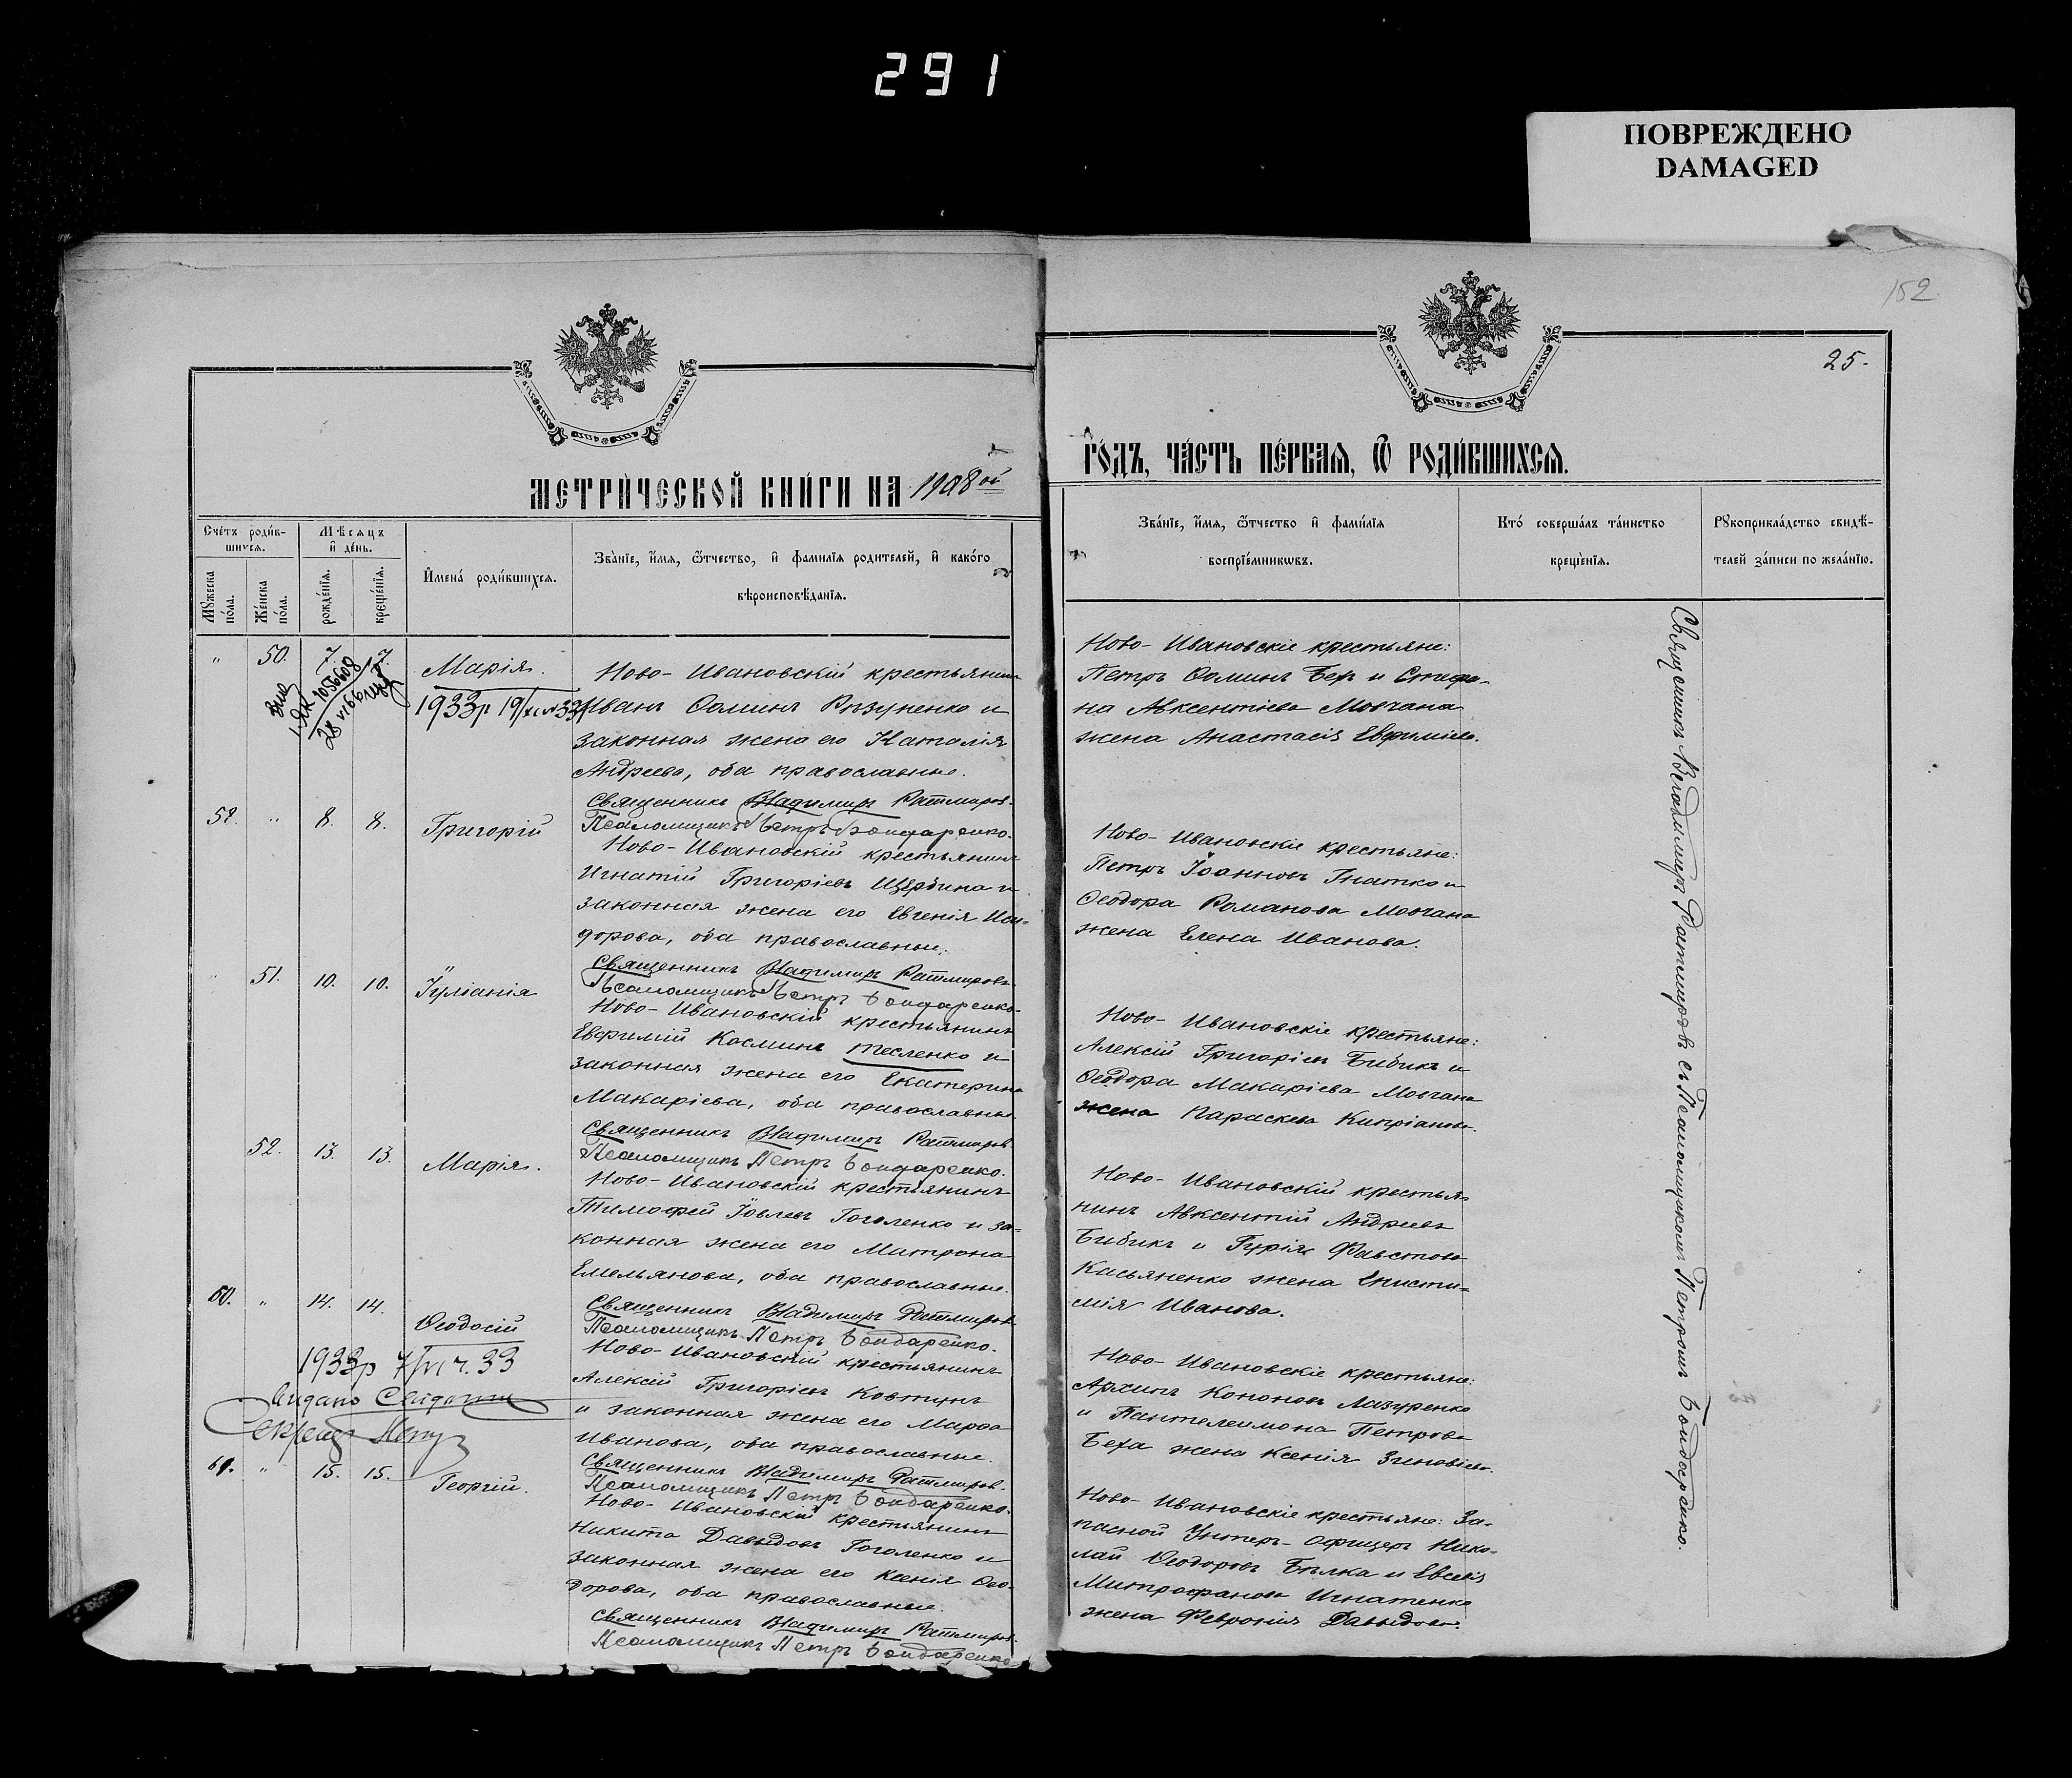 291
ПОВРЕЖДЕНО
DAMAGED
152
25.
МЕТРИ́ЧЕСКОЙ КНИ́ГИ НА 1908ой
ГО́ДЪ, ЧА́СТЬ ПЕ́РВАѦ, Ѽ РОДИ́ВШИХСѦ.
Сче́тъ роди́в-
шихсѧ.
Мѣ́сѧцъ
и҆ де́нь.
Мꙋ́жеска по́ла.
Же́нска по́ла.
рожде́нїѧ.
креще́нїѧ.
И҆мена̀ роди́вшихсѧ.
Зва́нїе, и҆́мѧ, ѻ҆́тчество, и҆ фами́лїѧ роди́телей, и҆ како́го
вѣроисповѣ́данїѧ.
Зва́нїе, и҆́мѧ, ѻ҆́тчество и҆ фами́лїѧ
воспрїе́мникѡвъ.
Кто̀ соверша́лъ та́инство
креще́нїѧ.
Рꙋкоприкла́дство свидѣ́-
телей за́писи по жела́нїю.
" 50. 7. 7. Марія.
1933р
Ново-Ивановскій крестьянинъ
Иванъ Ѳоминъ и
законная жена его Наталія
Андреева, оба православные.
Священникъ Владимиръ Ратмировъ.
Псаломщикъ Петръ Бондаренко.
Ново-Ивановскіе крестьяне:
Петръ Ѳоминъ Бех и Стефа-
на Авксентіева Мовчана
жена Анастасія Евфиміева.
" 8. 8. Григорій
Ново-Ивановскій крестьянинъ
Игнатій Григоріевъ Щербина и
законная жена его Евгенія Иси-
дорова, оба православные.
Священникъ Владимиръ Ратмировъ.
Псаломщикъ Петръ Бондаренко.
Ново-Ивановскіе крестьяне:
Петръ Іоанновъ Гнатко и
Ѳеодора Романова Мовчана
жена Елена Иванова.
" 51. 10. 10. Іуліанія
Ново-Ивановскій крестьянинъ
Евфимій Косминъ Тесленко и
законная жена его Екатерина
Макаріева, оба православные.
Священникъ Владимиръ Ратмировъ.
Псаломщикъ Петръ Бондаренко.
Ново-Ивановскіе крестьяне:
Алексій Григоріевъ Бибикъ и
Ѳеодора Макаріева Мовчана
жена Параскева Кипріанова.
52. 13. 13. Марія.
Ново-Ивановскій крестьянинъ
Тимофей Іовлевъ Гоголенко и за-
конная жена его Митрона
Емельянова, оба православные.
Священникъ Владимиръ Ратмировъ.
Псаломщикъ Петръ Бондаренко.
Ново-Ивановскій крестья-
нинъ Авксентій Андреевъ
Бибикъ и Гурія Фавстова
Касьяненко жена Еписти-
мія Иванова.
60. " 14. 14. Ѳеодосій
1933р 7/VI ч. 33
Видано
Ново-Ивановскій крестьянинъ
Алексій Григоріевъ Ковтунъ
и законная жена его Марѳа
Иванова, оба православные.
Священникъ Владимиръ Ратмировъ.
Псаломщикъ Петръ Бондаренко.
Ново-Ивановскіе крестьяне:
Архипъ Кононовъ Мазуренко
и Пантелеимона Петрова
Беха жена Ксенія Зиновіева.
61. " 15. 15. Георгій.
Ново-Ивановскій крестьянинъ
Никита Давидовъ Гоголенко и
законная жена его Ксенія Ѳео-
дорова, оба православные.
Священникъ Владимиръ Ратмировъ.
Псаломщикъ Петръ Бондаренко.
Ново-Ивановскіе крестьяне: За-
пасной Унтеръ-Офицеръ Нико-
лай Ѳеодоровъ Бѣлка и Евсевія
Митрофанова Игнатенко
жена Февронія Давыдова.
Священникъ Владимиръ Ратмировъ съ Псаломщикомъ Петромъ Бондаренко.